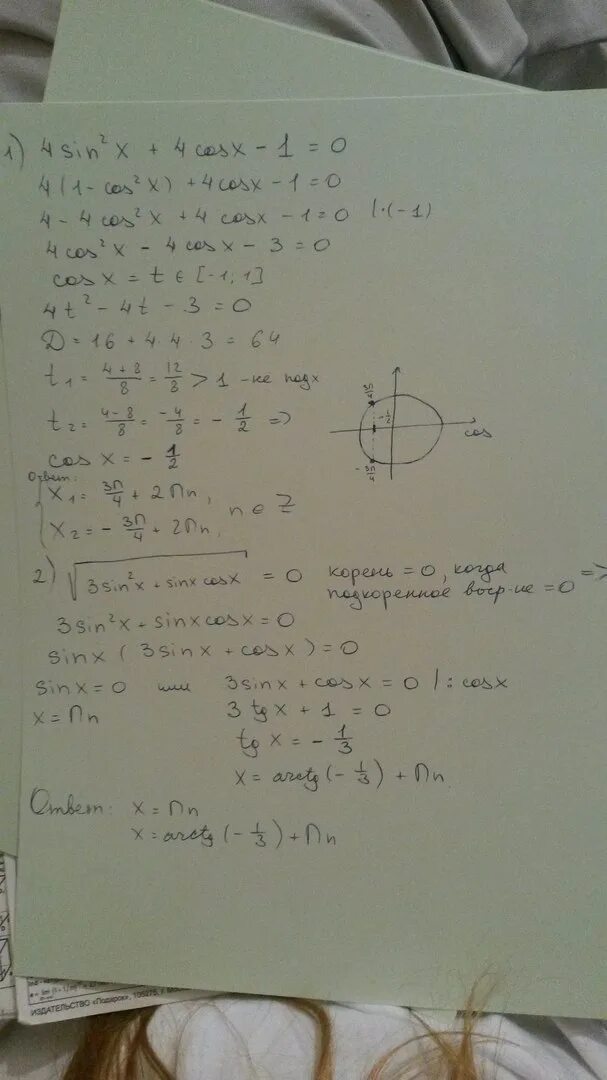 1) 4 sin²x + 4 cosx - 1 = 0
4(1 - cos²x) + 4cosx - 1 = 0
4 - 4cos²x + 4 cosx - 1 = 0 |·(-1)
4cos²x - 4cosx - 3 = 0
cos x = t ∈ [-1; 1]
4t² - 4t - 3 = 0
D = 16 + 4·4·3 = 64
t₁ = (4+8)/8 = 12/8 > 1 - не подх
t₂ = (4-8)/8 = -4/8 = -1/2 =>
cos x = -1/2
3π/4
-1/2
cos
-3π/4
Ответ:
x₁ = 3π/4 + 2πn,
x₂ = -3π/4 + 2πn,
n ∈ Z
2) √(3sin²x + sinx cosx) = 0 корень = 0, когда
подкоренное выр-ие = 0 =>
3sin²x + sinx cosx = 0
sinx (3sinx + cosx) = 0
sinx = 0 или 3sinx + cosx = 0 |: cosx
x = πn 3 tg x + 1 = 0
tg x = -1/3
x = arctg(-1/3) + πn
Ответ: x = πn
x = arctg(-1/3) + πn
ИЗДАТЕЛЬСТВО «Подарок», 105275, г.